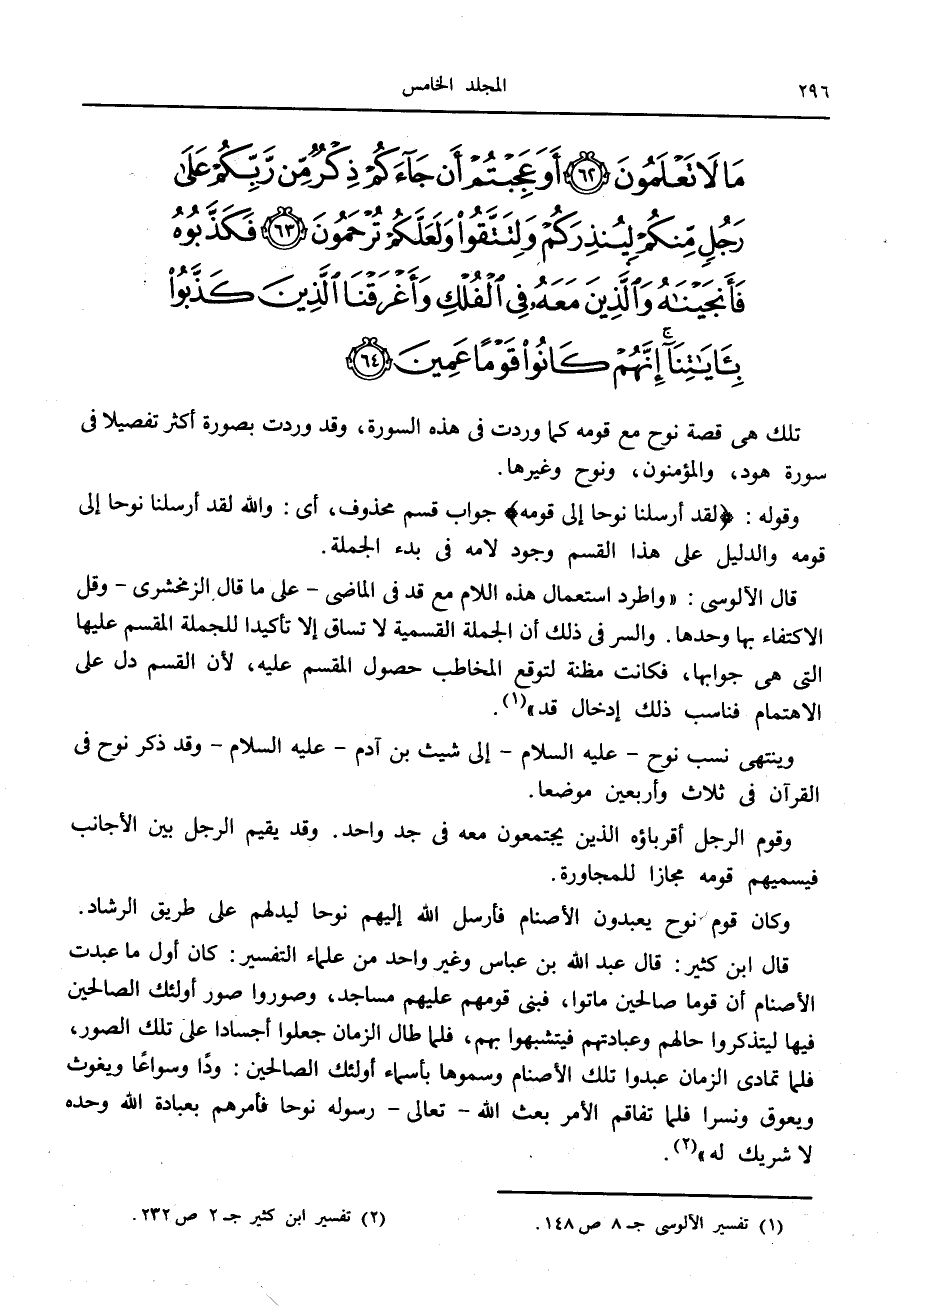 ٢٩٦
المجلد الخامس
مَا لَا تَعْلَمُونَ ﴿٦٢﴾ أَوَعَجِبْتُمْ أَن جَآءَكُمْ ذِكْرٌ مِّن رَّبِّكُمْ عَلَىٰ
رَجُلٍ مِّنكُمْ لِيُنذِرَكُمْ وَلِتَتَّقُوا۟ وَلَعَلَّكُمْ تُرْحَمُونَ ﴿٦٣﴾ فَكَذَّبُوهُ
فَأَنجَيْنَٰهُ وَٱلَّذِينَ مَعَهُۥ فِى ٱلْفُلْكِ وَأَغْرَقْنَا ٱلَّذِينَ كَذَّبُوا۟
بِـَٔايَٰتِنَآ ۚ إِنَّهُمْ كَانُوا۟ قَوْمًا عَمِينَ ﴿٦٤﴾
تلك هى قصة نوح مع قومه كما وردت فى هذه السورة، وقد وردت بصورة أكثر تفصيلا فى
سورة هود، والمؤمنون، ونوح وغيرها.
وقوله : ﴿لقد أرسلنا نوحا إلى قومه﴾ جواب قسم محذوف، أى : والله لقد أرسلنا نوحا إلى
قومه والدليل على هذا القسم وجود لامه فى بدء الجملة.
قال الآلوسى : «واطرد استعمال هذه اللام مع قد فى الماضى - على ما قال الزمخشرى - وقل
الاكتفاء بها وحدها. والسر فى ذلك أن الجملة القسمية لا تساق إلا تأكيدا للجملة المقسم عليها
التى هى جوابها، فكانت مظنة لتوقع المخاطب حصول المقسم عليه، لأن القسم دل على
الاهتمام فناسب ذلك إدخال قد»(١).
وينتهى نسب نوح - عليه السلام - إلى شيث بن آدم - عليه السلام - وقد ذكر نوح فى
القرآن فى ثلاث وأربعين موضعا.
وقوم الرجل أقرباؤه الذين يجتمعون معه فى جد واحد. وقد يقيم الرجل بين الأجانب
فيسميهم قومه مجازا للمجاورة.
وكان قوم نوح يعبدون الأصنام فأرسل الله إليهم نوحا ليدلهم على طريق الرشاد.
قال ابن كثير : قال عبد الله بن عباس وغير واحد من علماء التفسير : كان أول ما عبدت
الأصنام أن قوما صالحين ماتوا، فبنى قومهم عليهم مساجد، وصوروا صور أولئك الصالحين
فيها ليتذكروا حالهم وعبادتهم فيتشبهوا بهم، فلما طال الزمان جعلوا أجسادا على تلك الصور،
فلما تمادى الزمان عبدوا تلك الأصنام وسموها بأسماء أولئك الصالحين : ودًا وسواعًا ويغوث
ويعوق ونسرا فلما تفاقم الأمر بعث الله - تعالى - رسوله نوحا فأمرهم بعبادة الله وحده
لا شريك له»(٢).
(١) تفسير الآلوسى جـ ٨ ص ١٤٨.
(٢) تفسير ابن كثير جـ ٢ ص ٢٣٢.